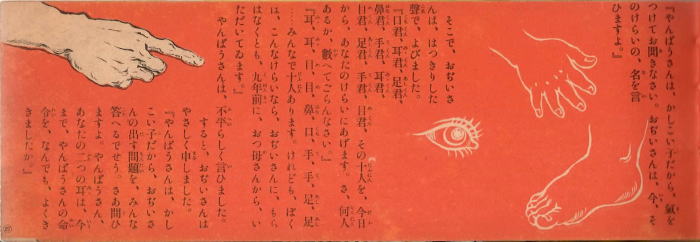 『やんぼうさんは、かしこい子だから、氣を
つけてお聞きなさい。おぢいさんは、今、そ
のけらいの、名を言
ひますよ。』
そこで、おぢいさ
んは、はつきりした
聲で、よびました。
『口君、耳君、足君、
鼻君、手君、耳君、
目君、足君、手君、目君、その十人を、今日
から、あなたのけらいにあげます。さ、何人
あるか、數へてごらんなさい。』
『耳、耳、目、目、鼻、口、手、手、足、足
……みんなで十人あります。けれども、ぼく
は、こんなけらいなら、おぢいさんに、もら
はなくとも、九年前に、おつ母さんから、い
ただいてゐます。』
やんぼうさんは、不平らしく言ひました。
すると、おぢいさんは
やさしく申しました。
『やんぼうさんは、かし
こい子だから、おぢいさ
んの出す問題を、みんな
答へるでせう。さあ問ひ
ますよ。やんぼうさん、
あなたの二つの耳は、今
まで、やんぼうさんの命
令を、なんでも、よくき
きましたか。』